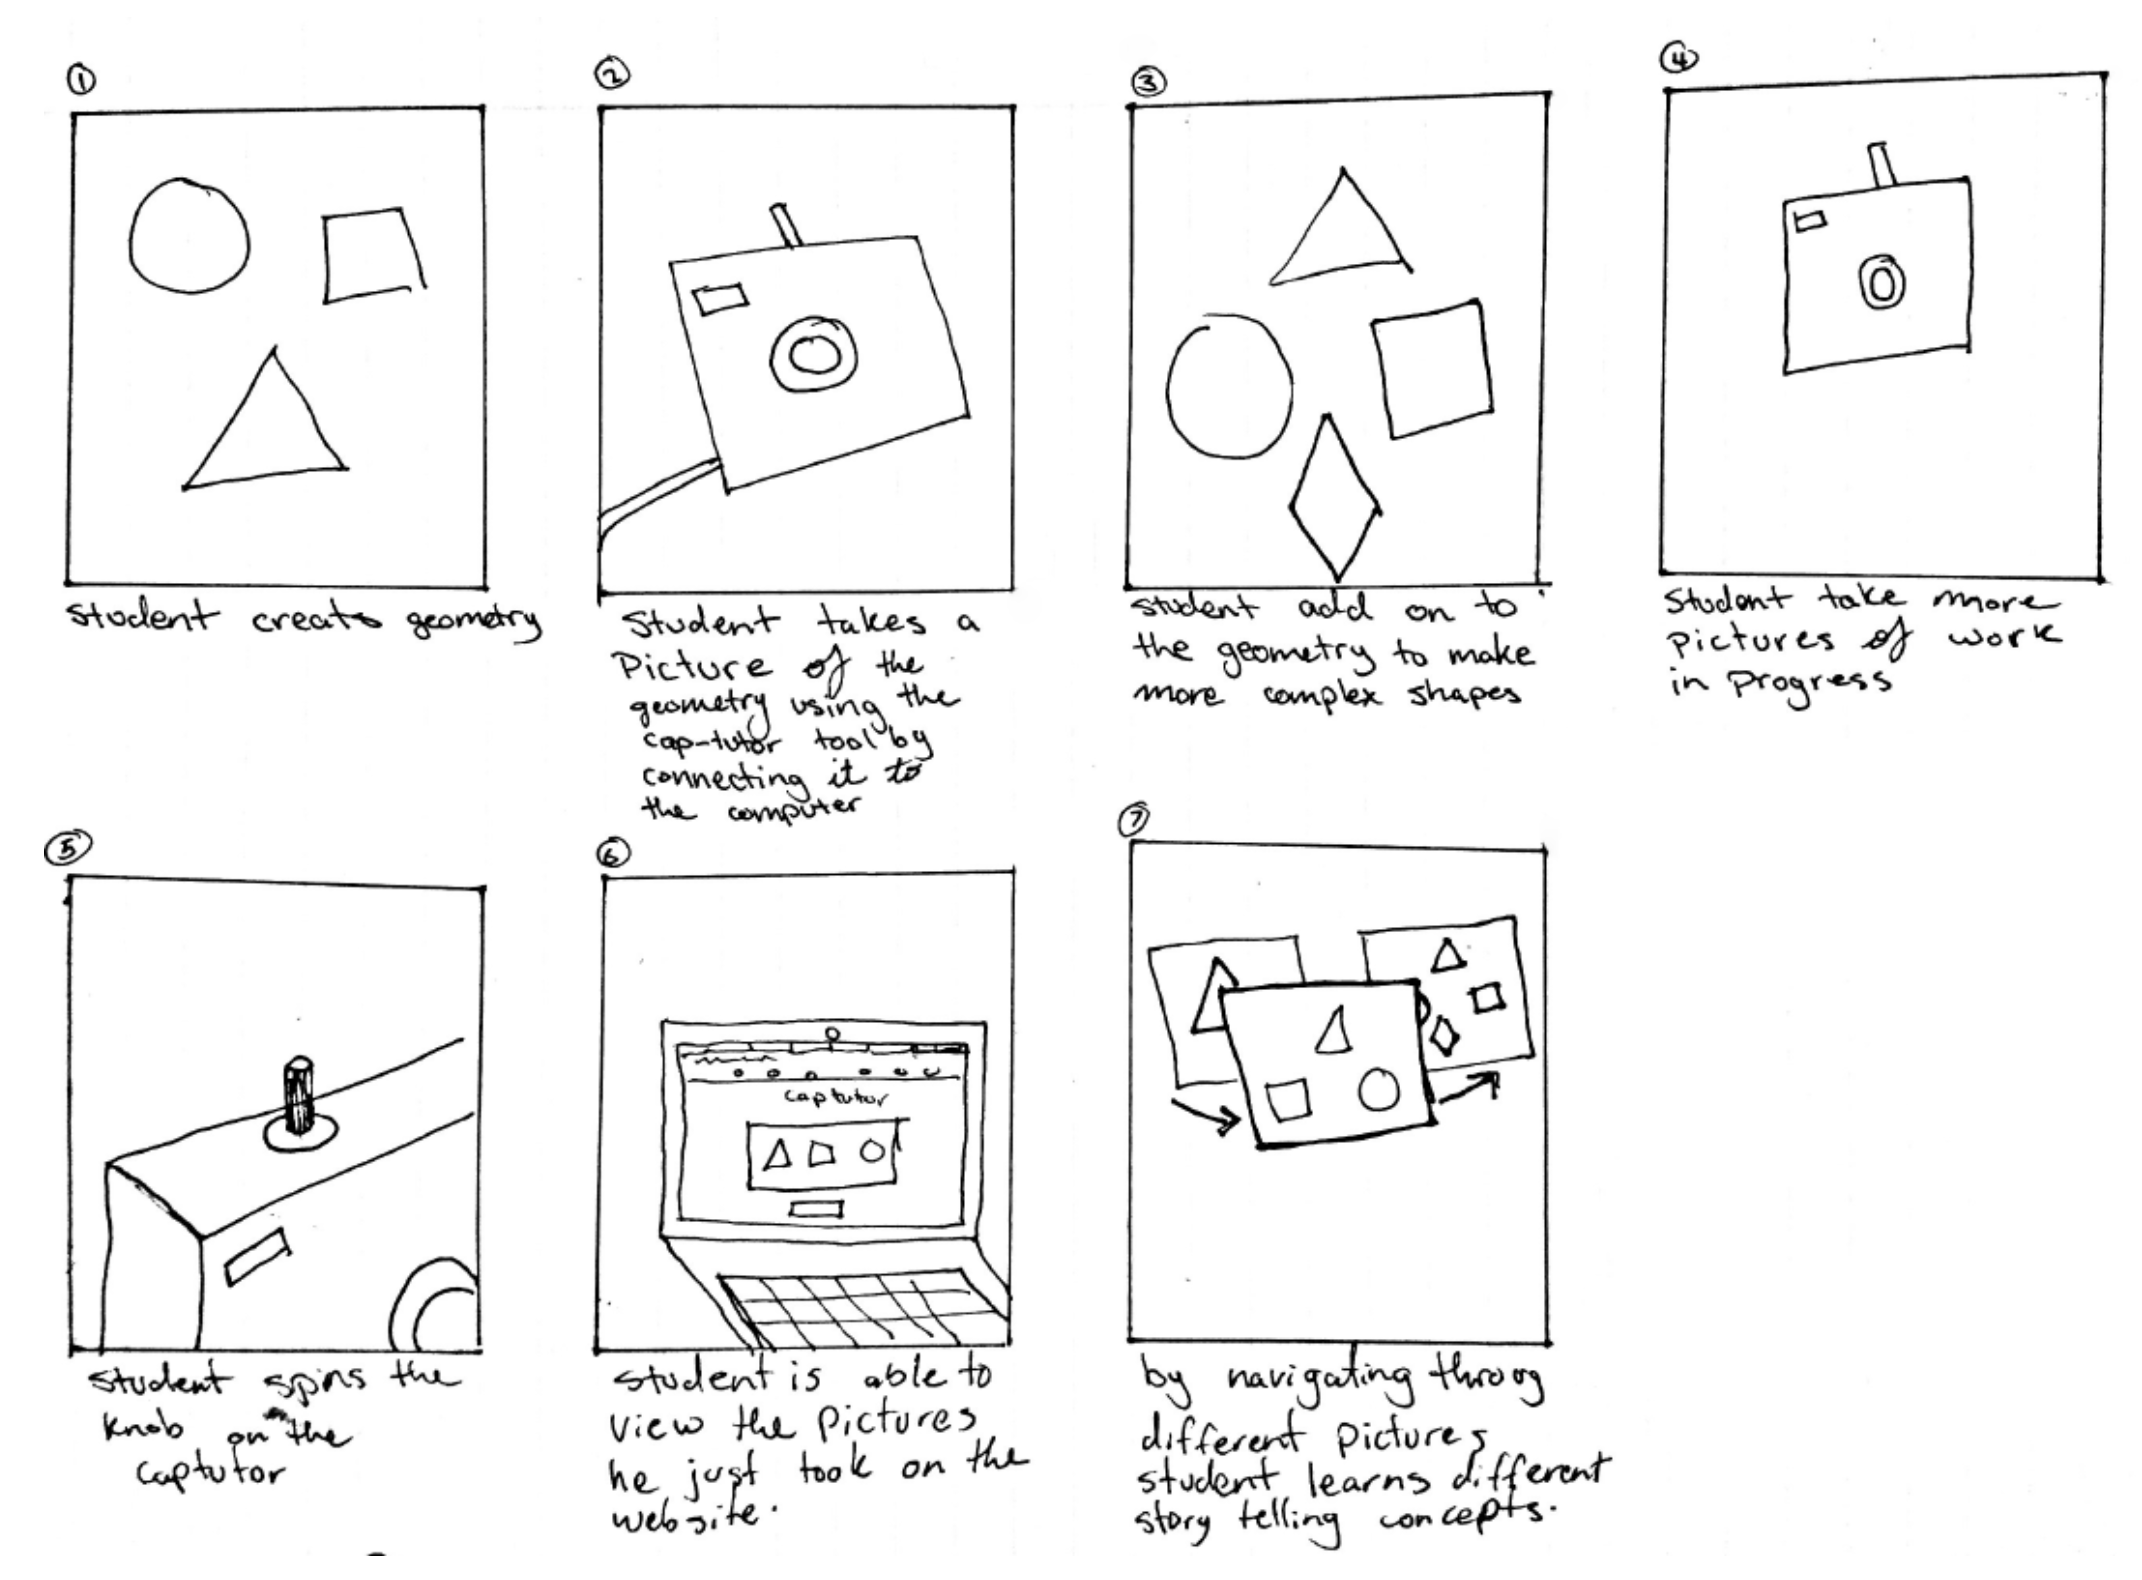 ①
student creats geometry
②
Student takes a
Picture of the
geometry using the
cap-tutor tool by
connecting it to
the computer
③
student add on to
the geometry to make
more complex shapes
④
Student take more
pictures of work
in progress
⑤
student spins the
knob on the
captutor
⑥
captutor
student is able to
view the pictures
he just took on the
website.
⑦
by navigating throog
different pictures
student learns different
story telling concepts.